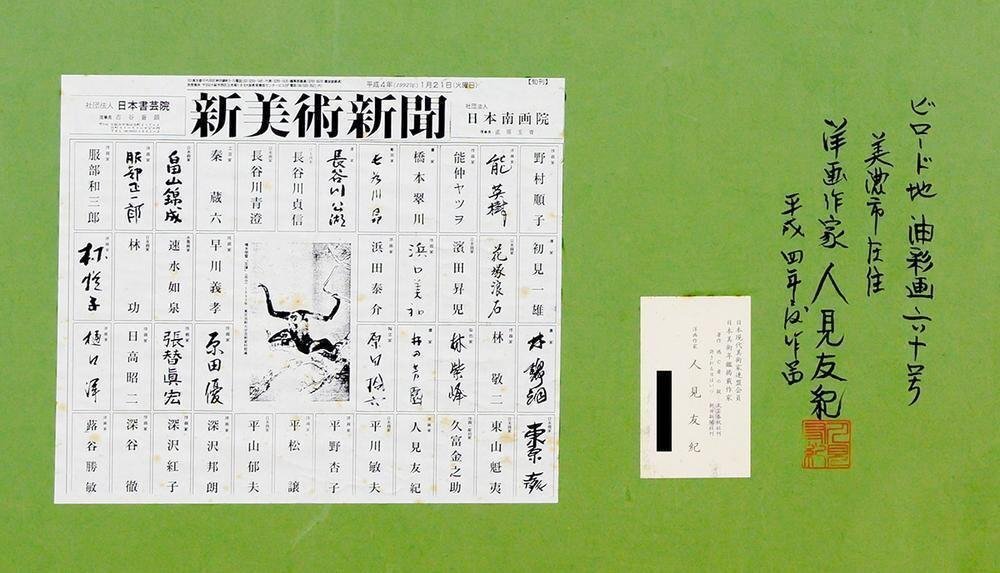 平成4年(1992年)1月21日(火曜日)
【旬刊】
社団法人 日本書芸院
新美術新聞
社団法人
日本南画院
野村順子
能英樹
能仲ヤツヲ
橋本翠川
長谷川貞信
長谷川青澄
秦蔵六
畠山錦成
服部正一郎
服部和三郎
初見一雄
花塚浪石
濱田昇児
浜田泰介
早川義孝
速水如泉
林功
林敬二
林紫峰
原田優
張替眞宏
日高昭二
樋口洋
東山魁夷
久富金之助
人見友紀
平川敏夫
平野杏子
平松譲
平山郁夫
深沢邦朗
深沢紅子
深谷徹
蕗谷勝敏
日本現代美術家連盟会員
日本美術年鑑掲載作家
洋画作家 人見友紀
ビロード地 油彩画 六十号
美濃市在住
洋画作家 人見友紀
平成四年度作品